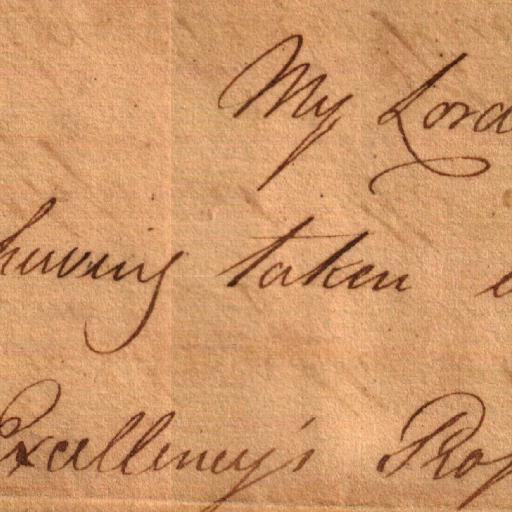 My Lord
having taken
Excellency's